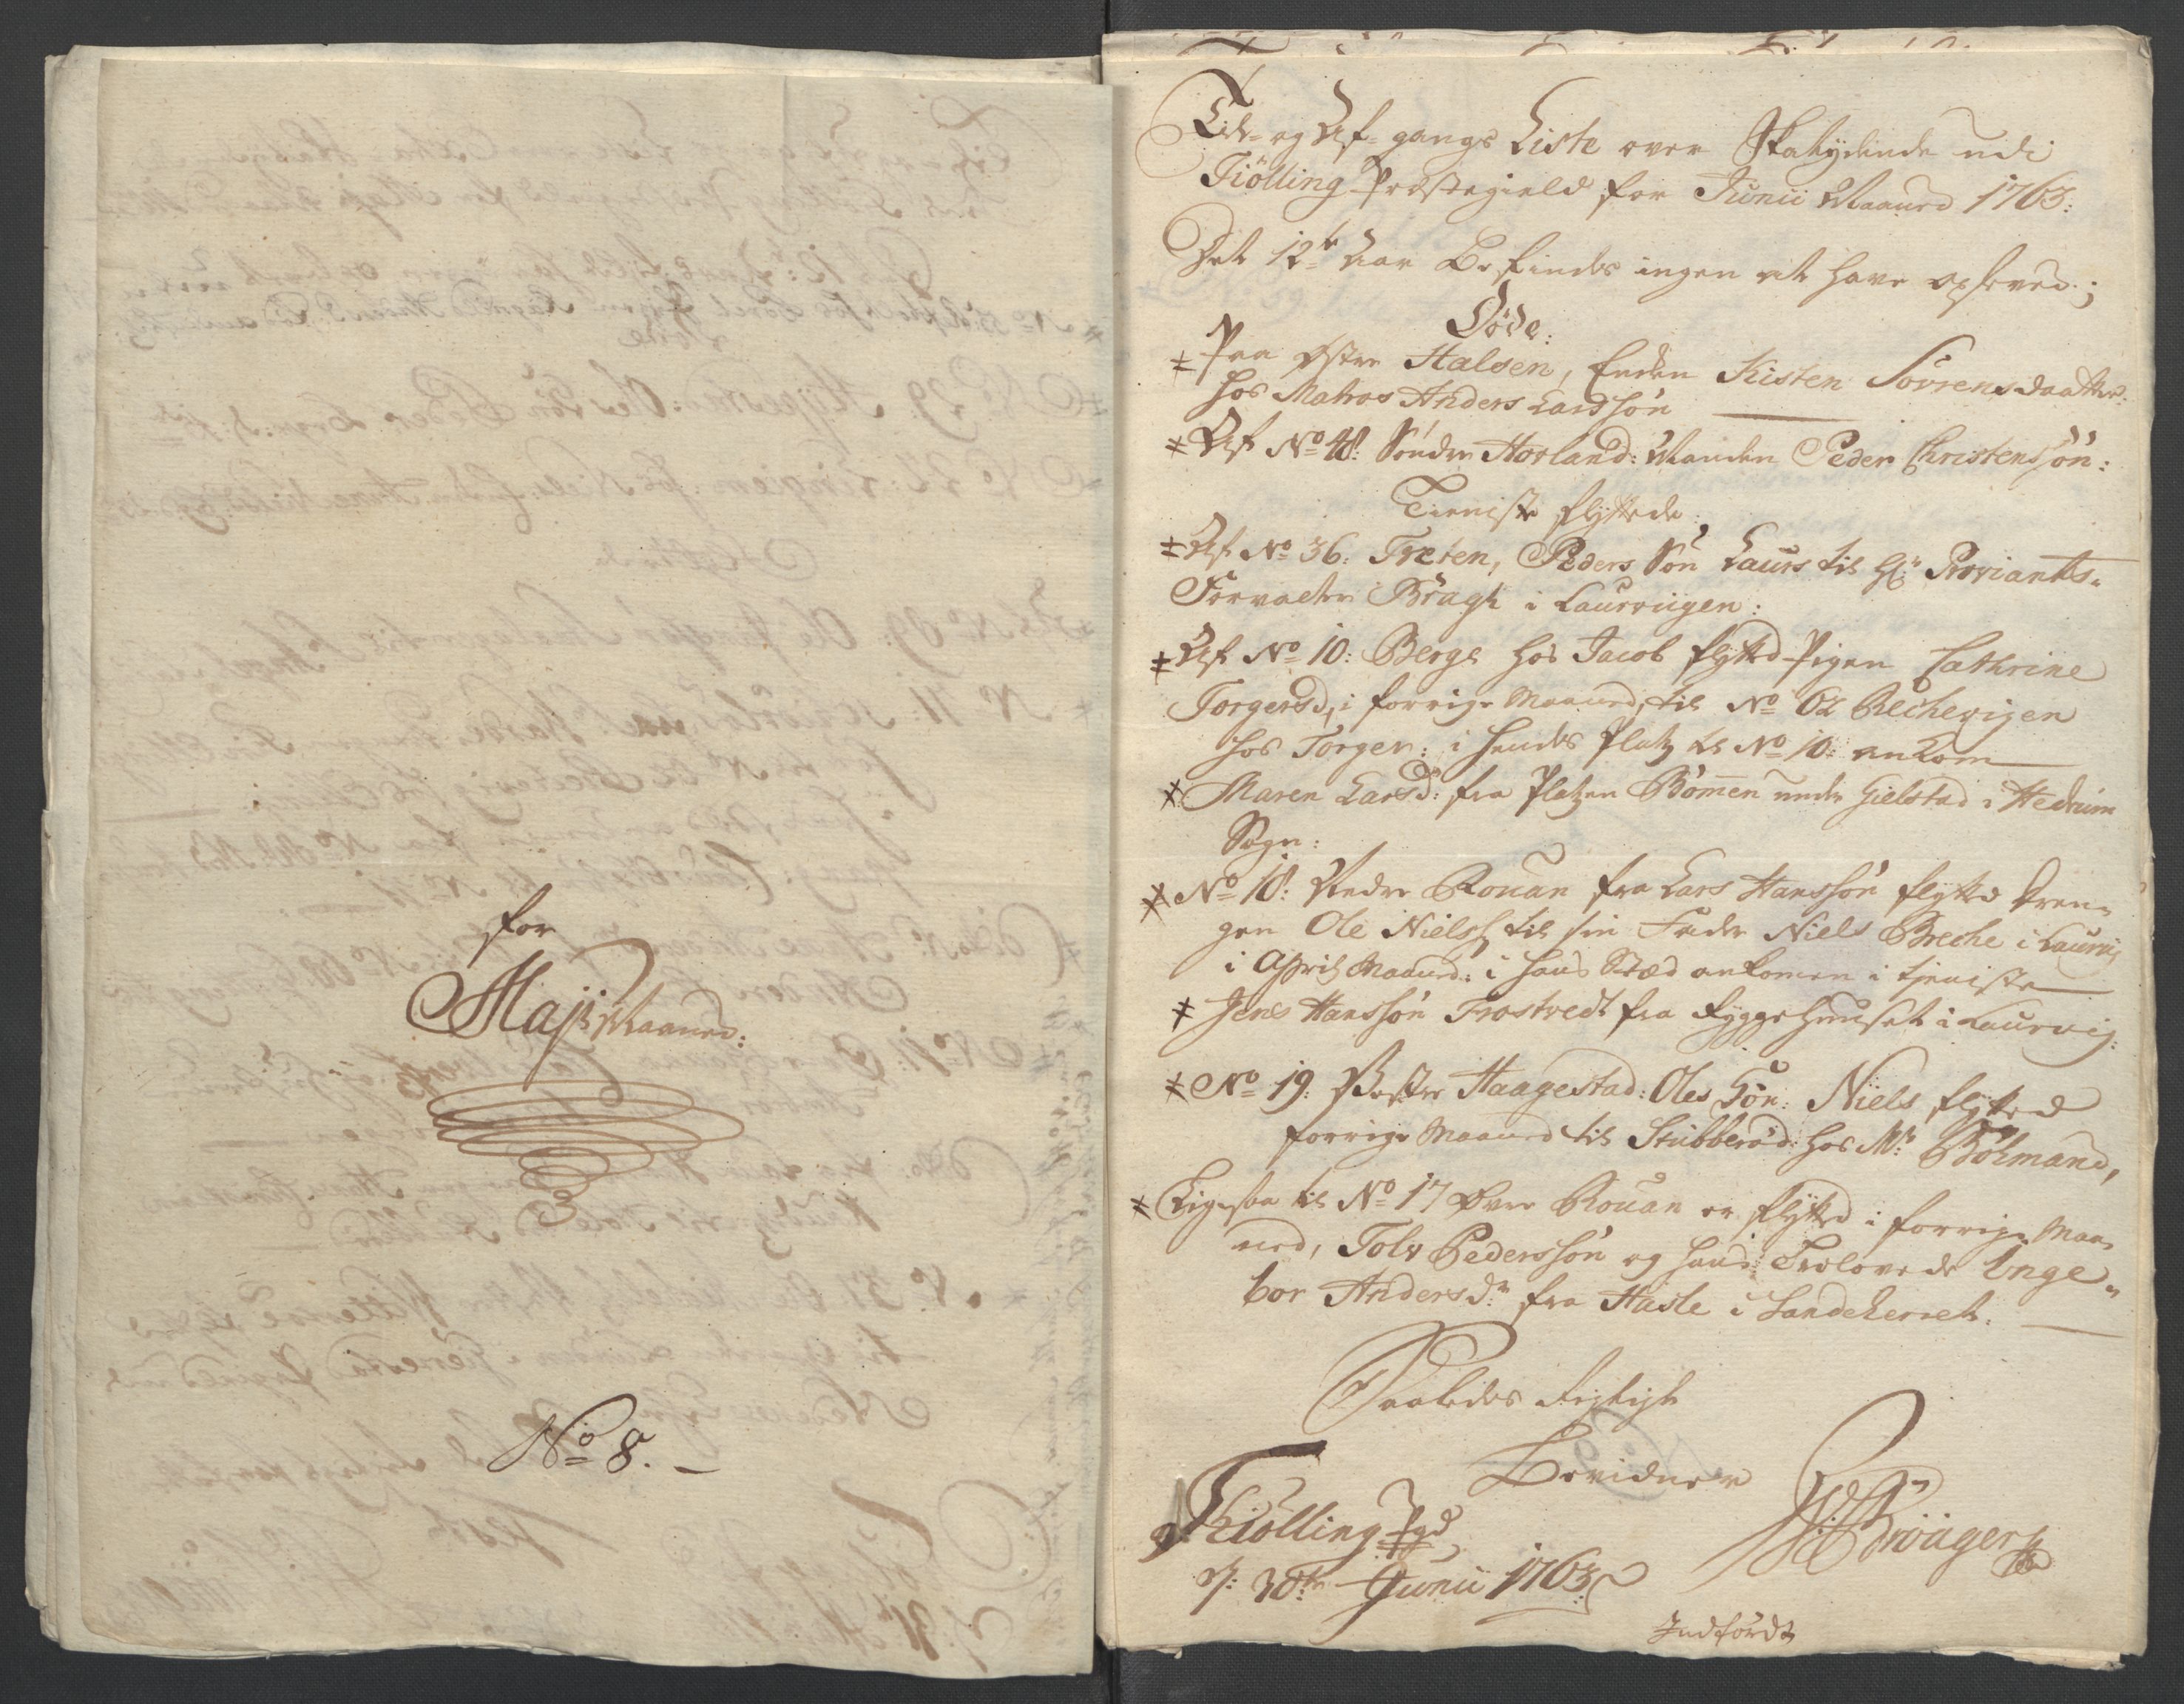 for
Maji Maaned:
No 8. –
Til- og Af-gangs Liste over Skatydende udi
Tiölling Præstegield for Junii Maaned 1763:
Det 12te Aar Befindes ingen at have opleved:;
Døde:
‡ Paa Østre Halsen, Enken Kisten Sövrensdaatter:
hos Matros Anders Larssøn
‡ Af No 48: Söndre Hovland: Manden Peder Christenssön:
Tieniste flyttede
‡ Af No 36: Treten, Peders Søn Laurs til Hr Proviants-
Forvalter Bragh i Laurviigen:
‡ Af No 10: Berge hos Jacob flytted Pigen Cathrine
Torgersd, i forrige Maaned, til No 62 Rechevigen
hos Torger: i hendes Platz til No 10: ankom
‡ Maren Larsd: fra Platzen Bömen under Gielstad i Hedrum
Sogn:
‡ No 18: Nedre Rouan fra Lars Hanssön flytted Dren-
gen Ole Nielss: til sin Fader Niels Breche i Laurvig
i April Maaned: i hans Stæd ankomen i tjeniste
‡ Jens Hanssön Trostvedt fra Byggehuuset i Laurvig:
‡ No 19: Vestre Haagestad: Oles Søn: Niels flytted
forrige Maaned til Stubberød: hos Mr Böhmand,
‡ Ligesaa til No 17 Øvre Rouan er flytted i forrige Maa-
ned, Tolv Pederssön og hans Trolovede Inge-
bor Andersdr fra Hasle i Sandeherret:
Saaledes Rigtigt
Bevidner
Tiölling Pgd
d: 30te Junii 1763
Indførdt